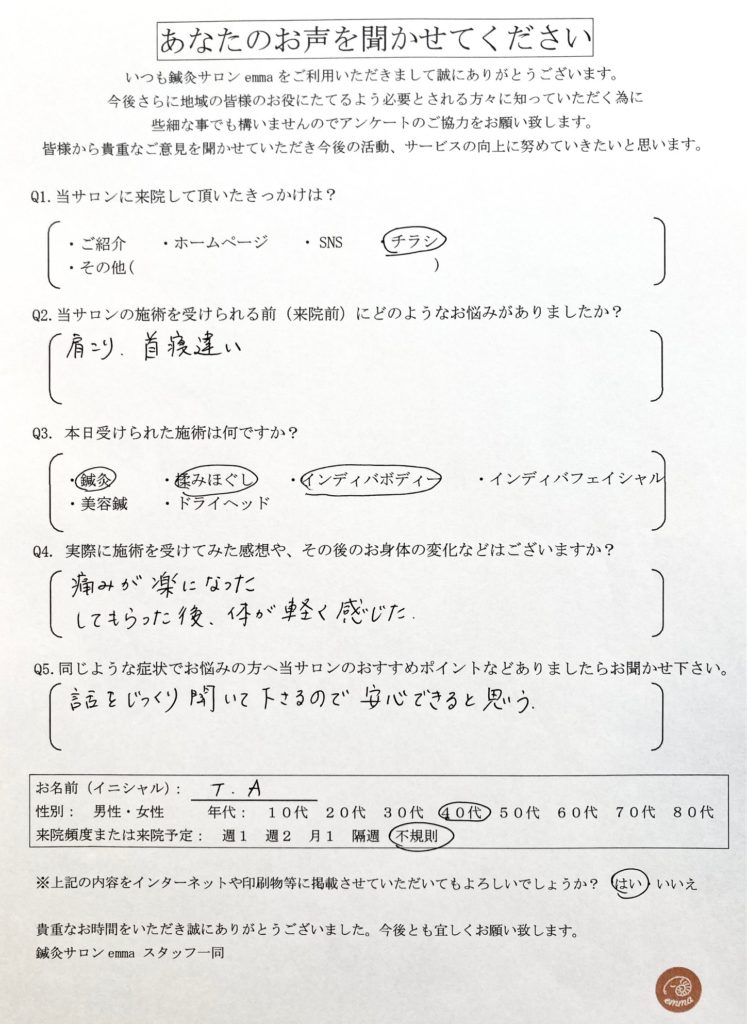 あなたのお声を聞かせてください
いつも鍼灸サロン emma をご利用いただきまして誠にありがとうございます。
今後さらに地域の皆様のお役にたてるよう必要とされる方々に知っていただく為に
些細な事でも構いませんのでアンケートのご協力をお願い致します。
皆様から貴重なご意見を聞かせていただき今後の活動、サービスの向上に努めていきたいと思います。
Q1.当サロンに来院して頂いたきっかけは？
・ご紹介 ・ホームページ ・SNS ・チラシ
・その他( )
Q2.当サロンの施術を受けられる前（来院前）にどのようなお悩みがありましたか？
肩こり、首寝違い
Q3. 本日受けられた施術は何ですか？
・鍼灸 ・揉みほぐし ・インディバボディー ・インディバフェイシャル
・美容鍼 ・ドライヘッド
Q4. 実際に施術を受けてみた感想や、その後のお身体の変化などはございますか？
痛みが楽になった
してもらった後、体が軽く感じた.
Q5.同じような症状でお悩みの方へ当サロンのおすすめポイントなどありましたらお聞かせ下さい。
話をじっくり聞いて下さるので安心できると思う.
お名前（イニシャル）： T.A
性別： 男性・女性 年代： 10代 20代 30代 40代 50代 60代 70代 80代
来院頻度または来院予定： 週1 週2 月1 隔週 不規則
※上記の内容をインターネットや印刷物等に掲載させていただいてもよろしいでしょうか？ はい・いいえ
貴重なお時間をいただき誠にありがとうございました。今後とも宜しくお願い致します。
鍼灸サロン emma スタッフ一同
emma